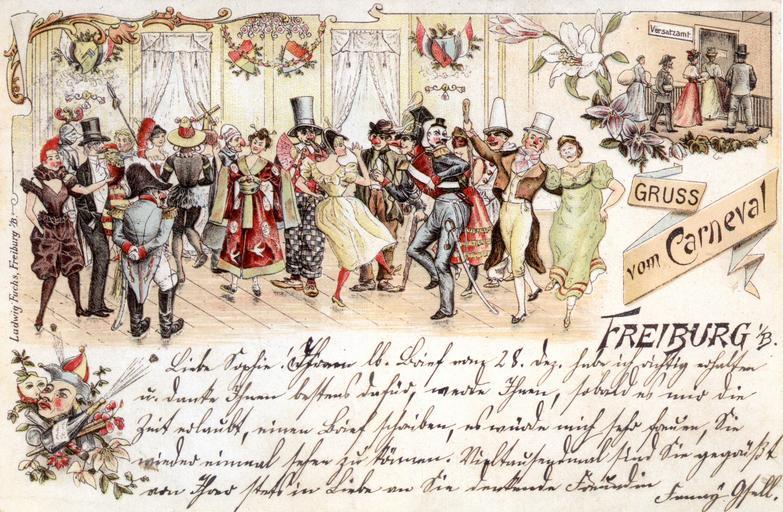 Versatzamt.
GRUSS
vom Carneval
FREIBURG i/B.
Ludwig Fuchs, Freiburg i/B.
Liebe Sophie! Ihren lb. Brief vom 28. Dez. habe ich richtig erhalten
u. danke Ihnen bestens dafür, werde Ihnen, sobald es mir die
Zeit erlaubt, einen Brief schreiben, es würde mich sehr freuen, Sie
wieder einmal sehen zu können. Vieltausendmal sind Sie gegrüßt
von Ihrer stets in Liebe an Sie denkende Freundin
Fanny Gsell.